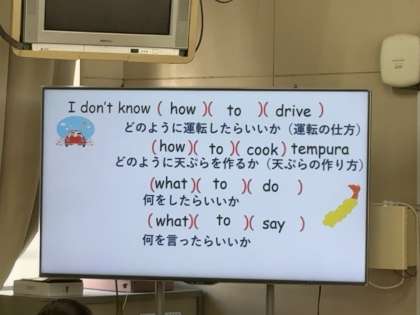 I don't know ( how )( to )( drive )
どのように運転したらいいか（運転の仕方）
( how )( to )( cook ) tempura
どのように天ぷらを作るか（天ぷらの作り方）
(what )( to )( do )
何をしたらいいか
(what )( to )( say )
何を言ったらいいか